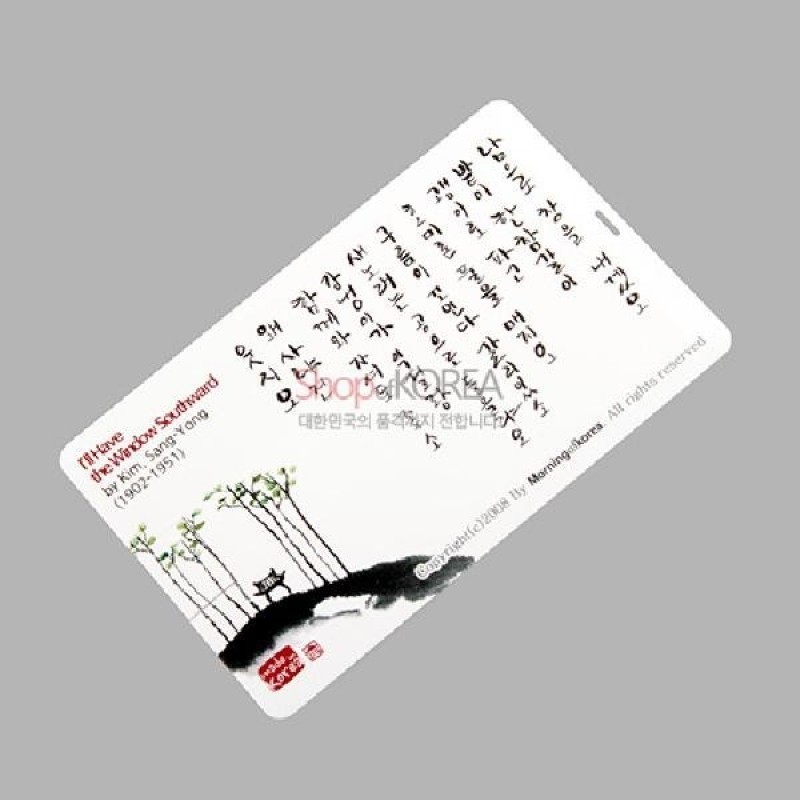 남으로 창을 내겠소
밭이 한참갈이
괭이로 파고
호미론 풀을 매지요
구름이 꼬인다 갈리 있소
새 노래는 공으로 들으랴오
강냉이가 익걸랑
함께 와 자셔도 좋소
왜 사냐건
웃지요
I'll Have
the Window Southward
by Kim, Sang-Yong
(1902-1951)
Shop of KOREA
대한민국의 품격까지 전합니다
Copyright(c)2008 By Morningofkorea. All rights reserved
made in
Korea